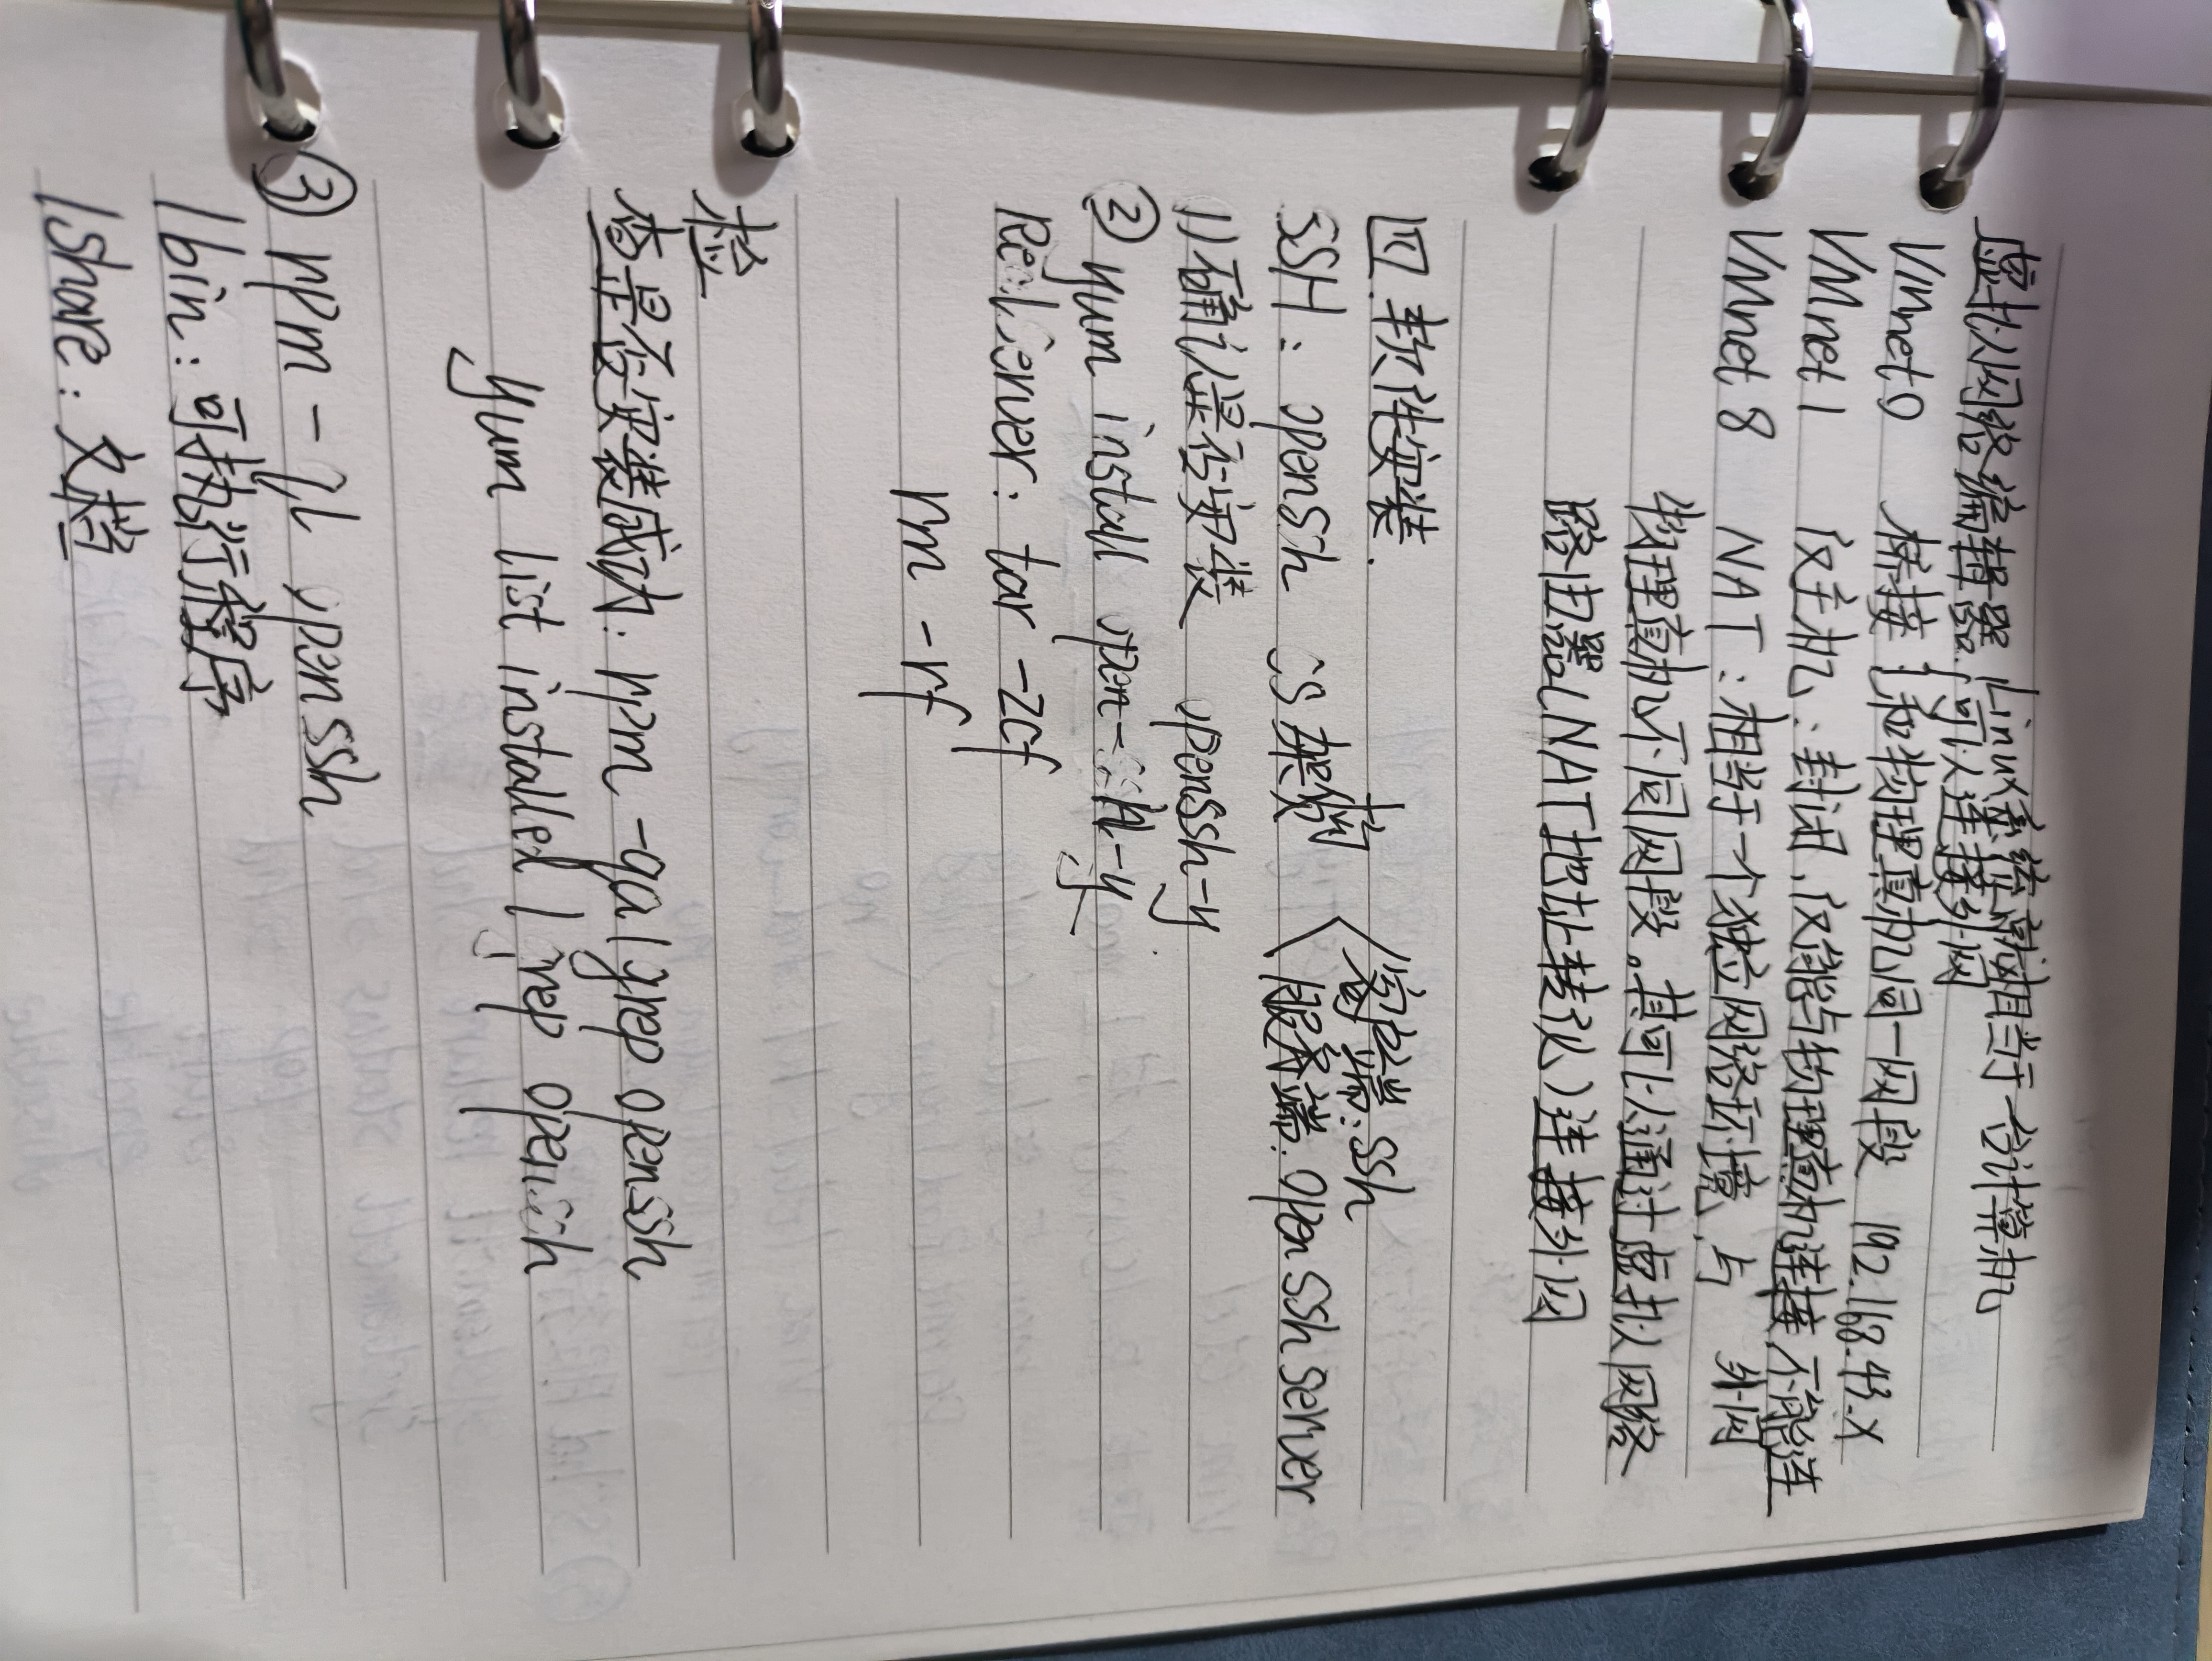 虚拟网络编辑器 Linux系统就相当于一台计算机
可以连接外网
Vmnet 0 桥接：和物理真机同一网段 192.168.43.X
VMnet 1 仅主机：封闭，仅能与物理真机连接，不能连外网
VMnet 8 NAT：相当于一个独立网络环境，与
物理真机不同网段。其可以通过虚拟网络
路由器（NAT地址转换）连接外网
四. 软件安装.
SSH： openssh CS架构 客户端：ssh
服务端：openssh server
1)确认是否安装 openssh-y
② yum install open-ssh-y
RealServer： tar -zcf
rm -rf
检
查是否安装成功：rpm -qa | grep openssh
yum list installed | grep openssh
③ rpm -ql openssh
/bin：可执行程序
/share：文档